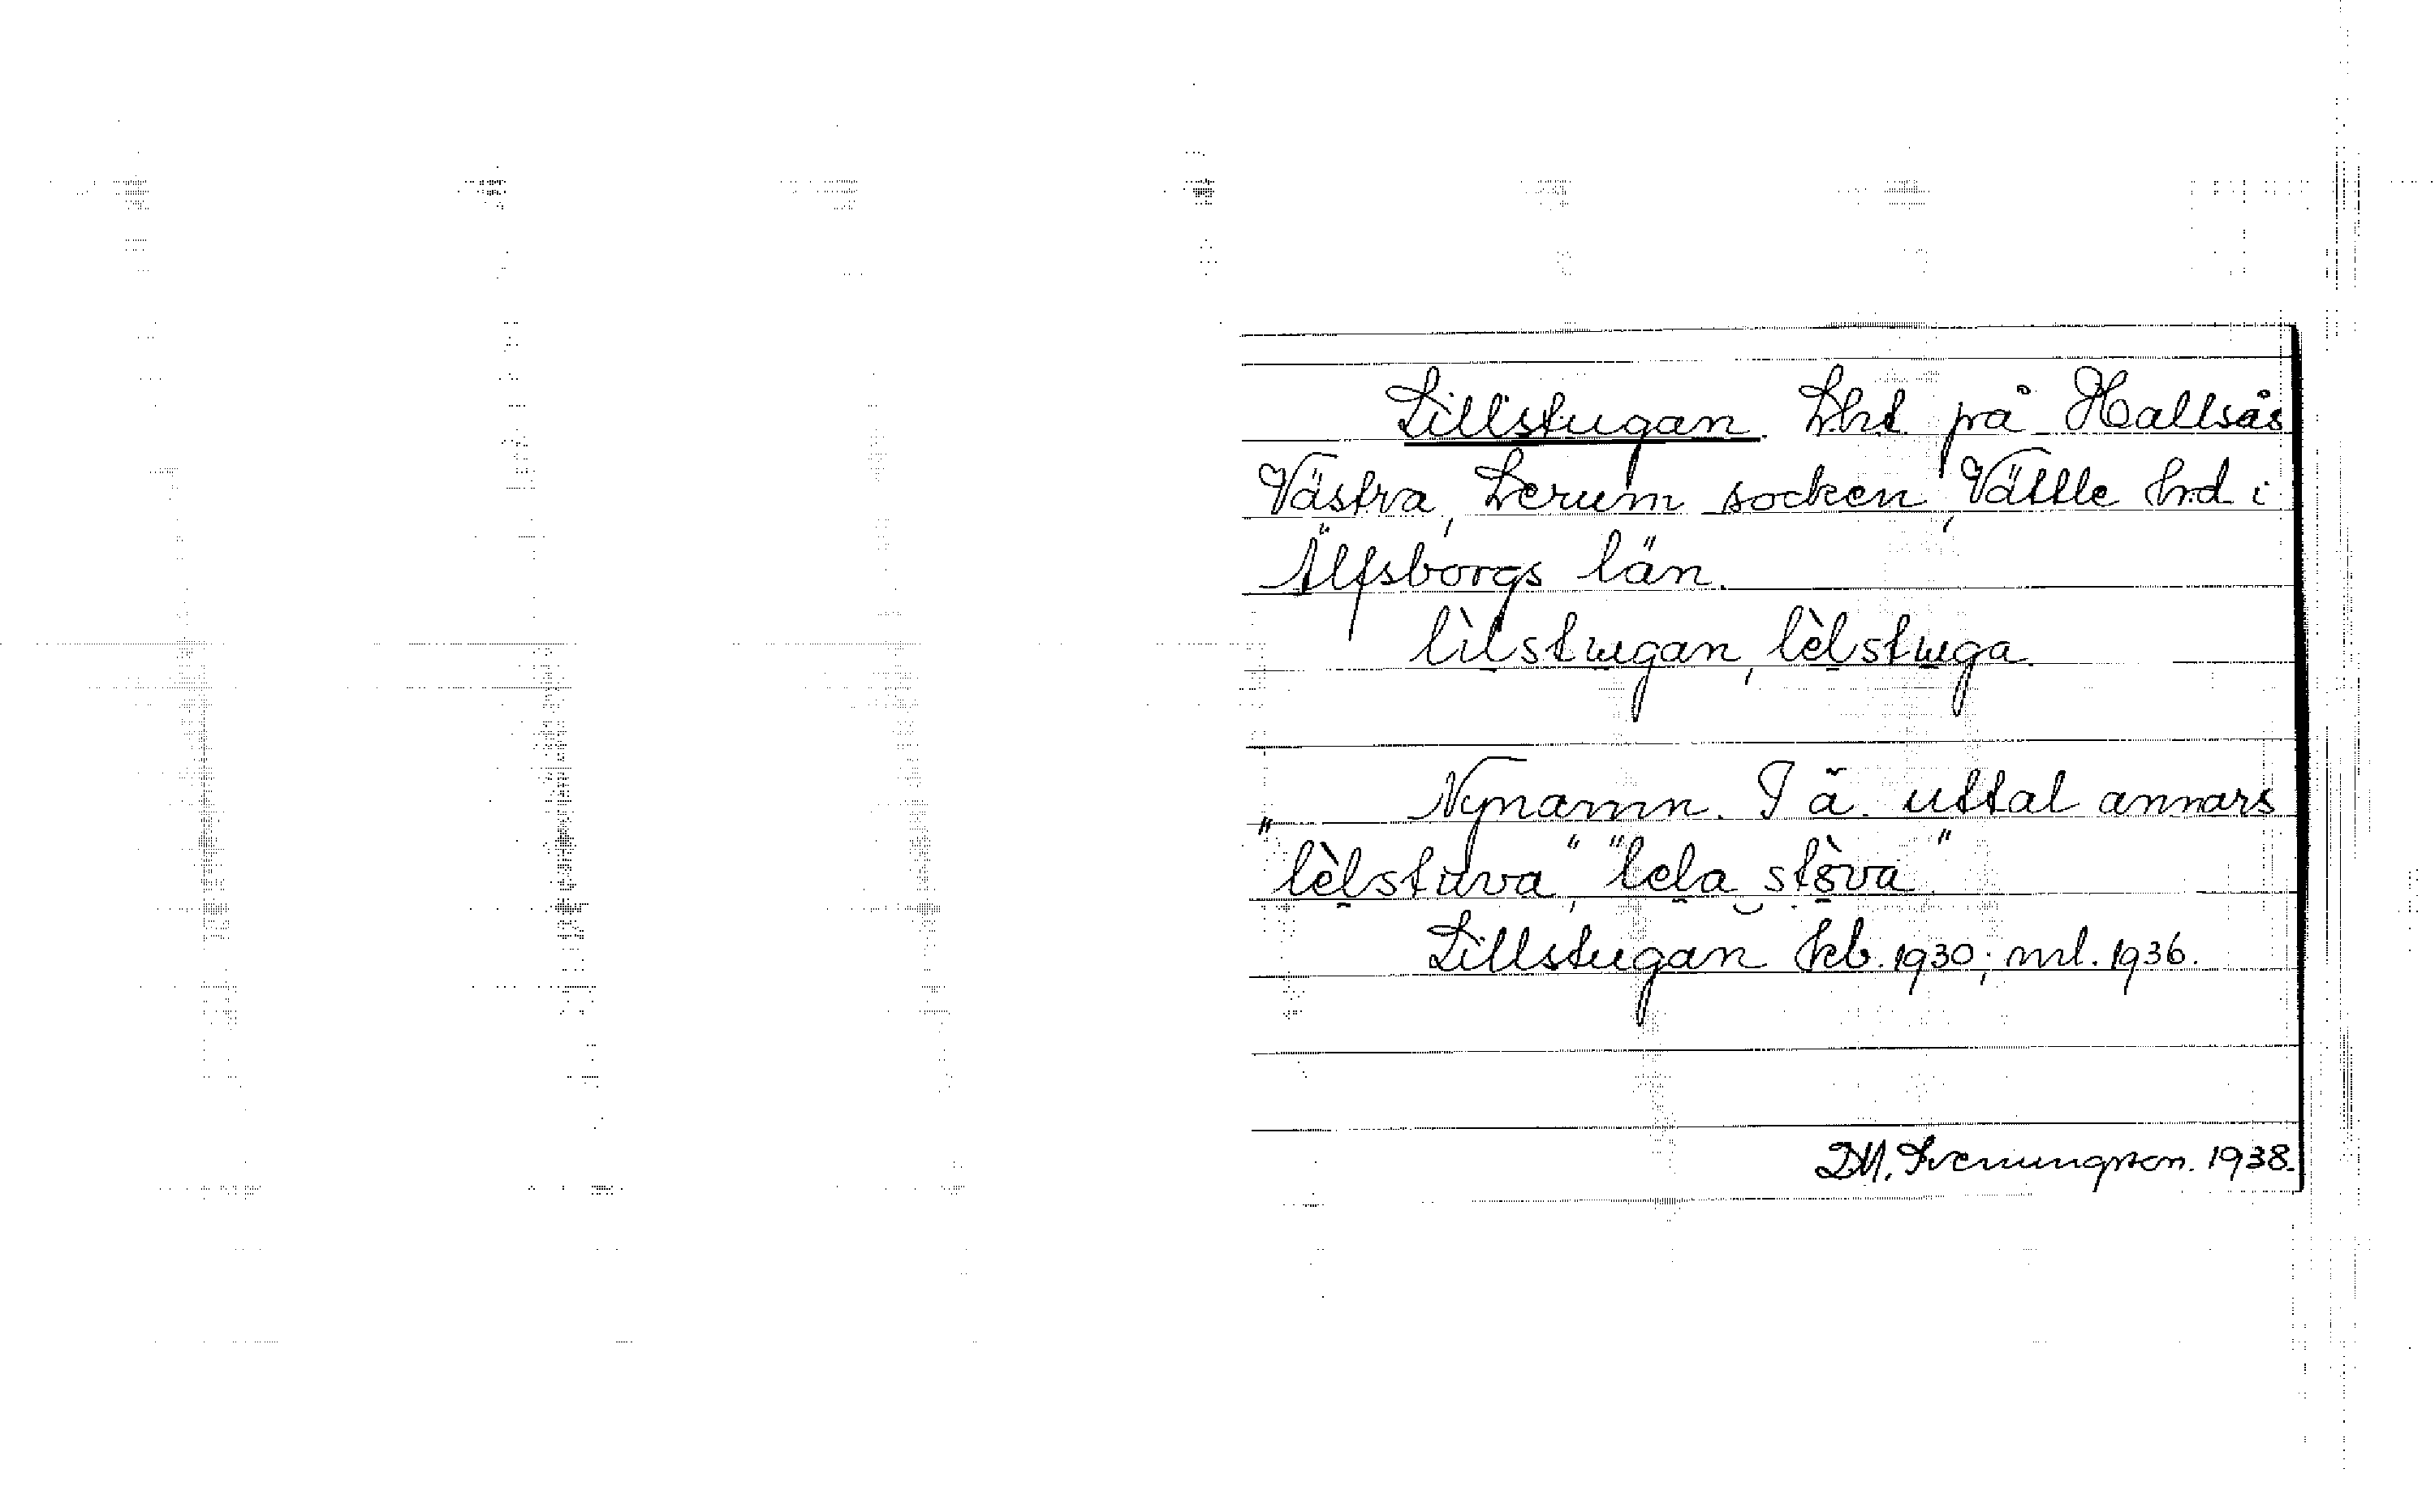 Lillstugan. Lht på Hallsås
Västra, Lerum socken, Vättle hd i
Älfsborgs län.
lìlstugan, lèlstuga.
Nynamn. I ä. uttal annars
"lèlstuva", "lela stòva".
Lillstugan kb. 1930; ml. 1936.
D.M. Svenungson. 1938.